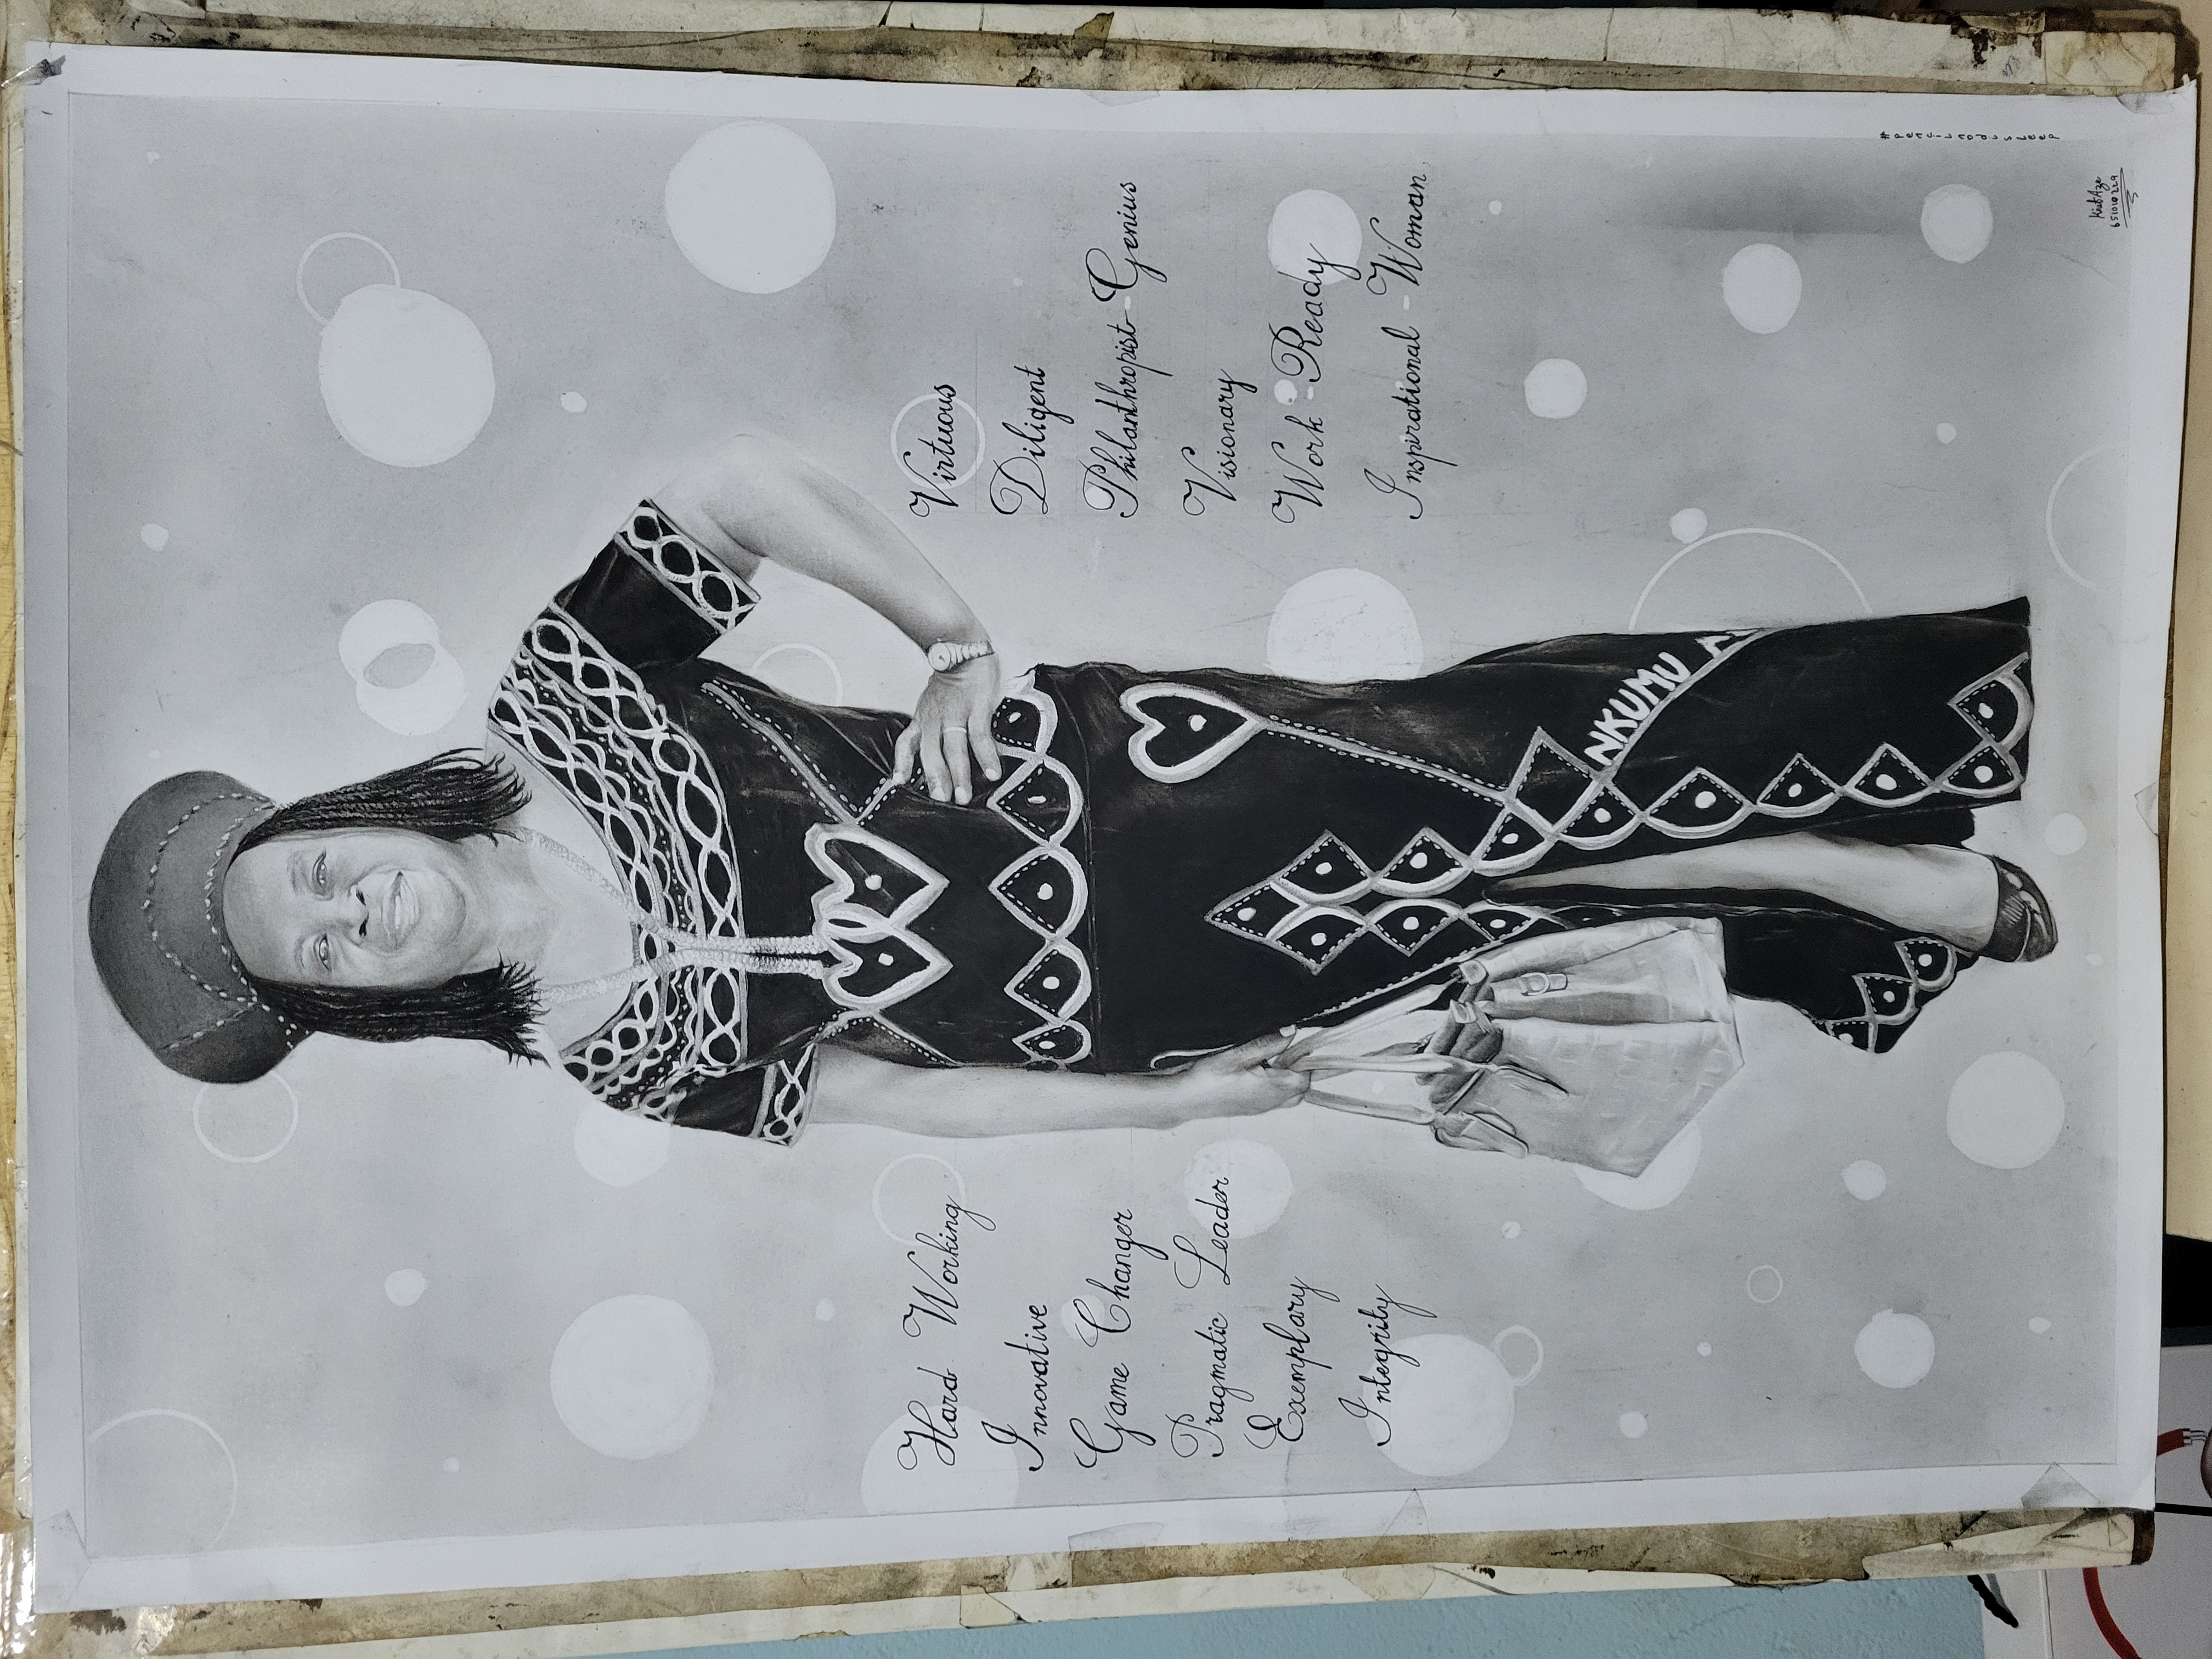 Hard Working
Innovative
Game Changer
Pragmatic Leader
Exemplary
Integrity
Virtuous
Diligent
Philanthropist-Genius
Visionary
Work-Ready
Inspirational-Woman
NKUMU F
#pencilnodisleep
651010229